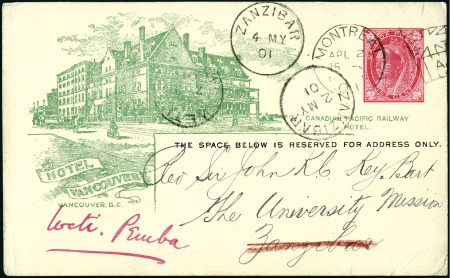 ZANZIBAR
4 MY
01
MONTREAL
APL 2
15
ZANZIBAR
2 MY
01
CANADIAN PACIFIC RAILWAY
HOTEL.
THE SPACE BELOW IS RESERVED FOR ADDRESS ONLY.
HOTEL
VANCOUVER
VANCOUVER, B.C.
Rev Sir John K.C. Key. Bart
The University Mission
Zanzibar
Weti. Pemba